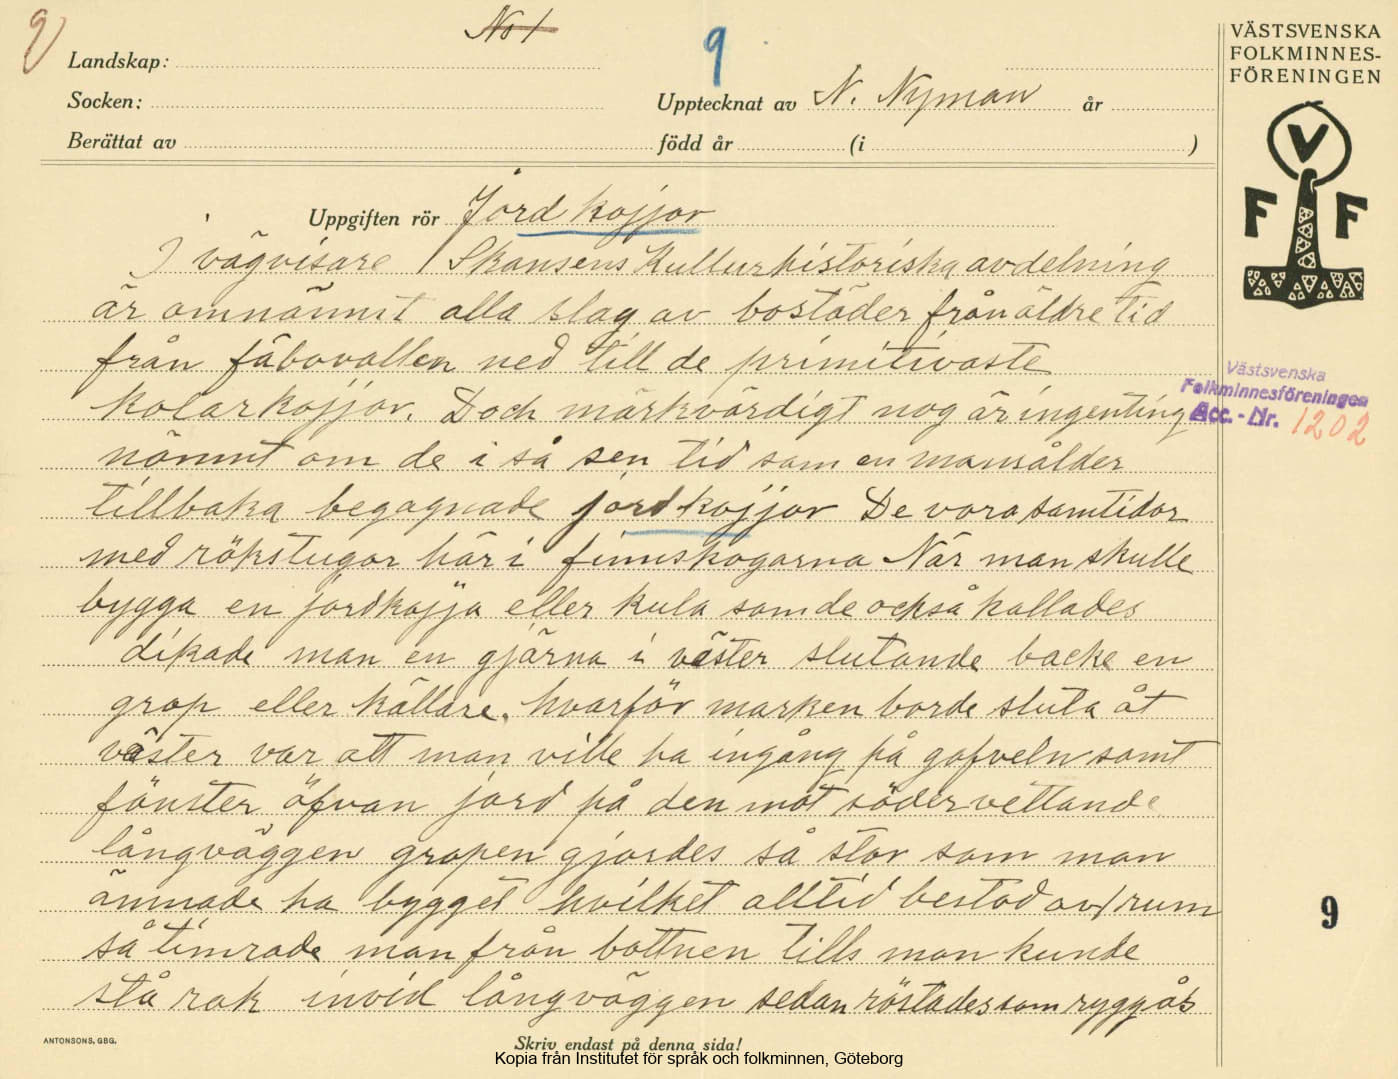 No 1
9
9
VÄSTSVENSKA
FOLKMINNES-
FÖRENINGEN
Landskap:
Socken:
Upptecknat av N. Nyman år
Berättat av
född år (i )
V
F F
Uppgiften rör Jordkojjor
I vägvisare / Skansens Kulturhistoriska avdelning
är omnämnt alla slag av bostäder från äldre tid
från fäbovallen ned till de primitivaste
kolarkojjor. Doch märkvärdigt nog är ingenting
nämnt om de i så sen tid som en mansålder
tillbaka begagnade jordkojjor De vora samtidor
med rökstugor här i finnskogarna När man skulle
bygga en jordkojja eller kula som de också kallades
dikade man en gjärna i väster slutande backe en
grop eller källare. hvarför marken borde sluta åt
väster var att man ville ha ingång på gafveln samt
fönster öfvan jord på den mot söder vettande
långväggen gropen gjordes så stor som man
ämnade ha bygget hvilket alltid bestod av 1 rum
så timrade man från bottnen tills man kunde
stå rak invid långväggen sedan röstades som ryggås
Västsvenska
Folkminnesföreningen
Acc. - Nr. 1202
9
ANTONSONS, GBG.
Skriv endast på denna sida!
Kopia från Institutet för språk och folkminnen, Göteborg